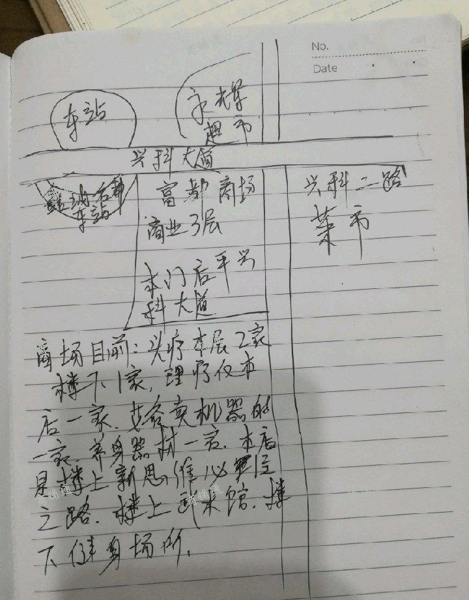 No.
Date
车站
永辉
超市
兴科大道
车站
富都商场
商业3层
本门后平兴
科大道
兴科二路
菜市
商场目前:兴疗本层2家
楼下1家,理疗仅本
店一家.艾灸卖机器的
一家.健身器材一家.本店
是楼上新思维必经
之路.楼上武术馆.楼
下健身场所.